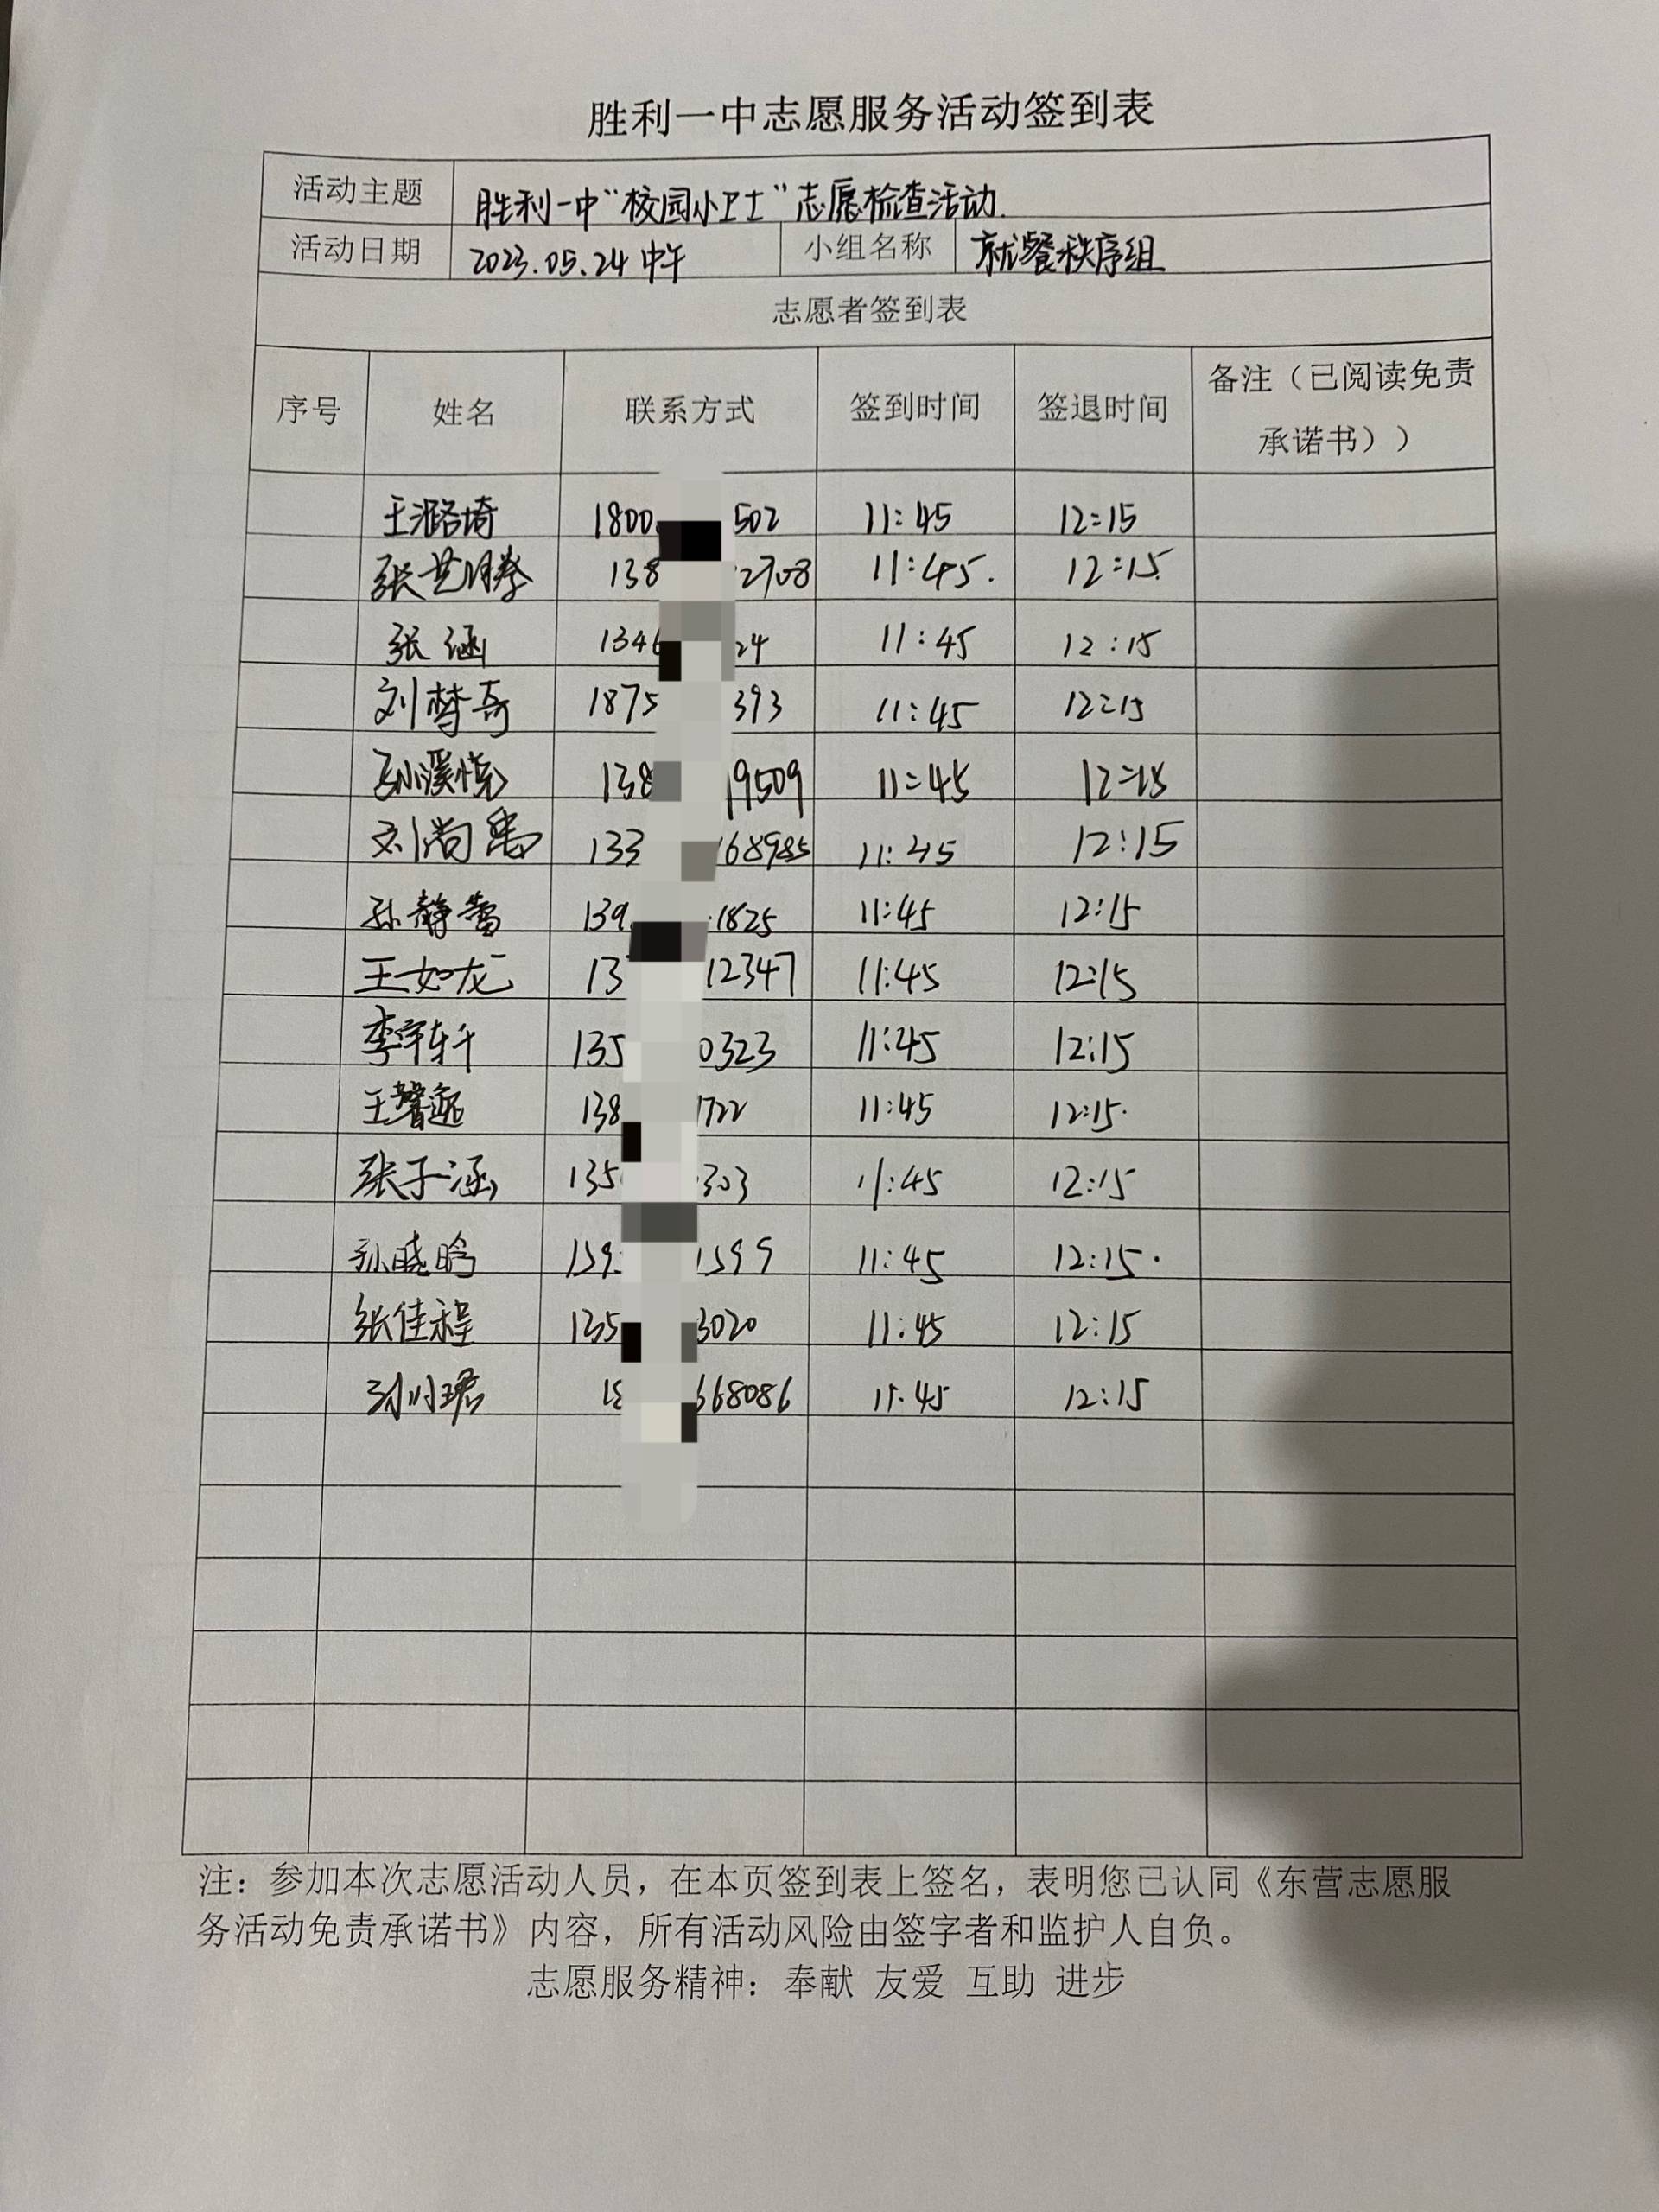 胜利一中志愿服务活动签到表
活动主题 胜利一中“校园小卫士”志愿检查活动.
活动日期 2023.05.24 中午 小组名称 就餐秩序组
志愿者签到表
序号 姓名 联系方式 签到时间 签退时间 备注（已阅读免责承诺书））
王潞琦 1800 502 11:45 12:15
张艺腾 138 2708 11:45. 12:15.
张涵 1346 24 11:45 12:15
刘梦奇 1875 393 11:45 12:15
孙溪悦 138 19509 11:45 12:15
刘尚禹 133 168985 11:45 12:15
孙静 139 1825 11:45 12:15
王如龙 13 12347 11:45 12:15
李宇轩 135 0323 11:45 12:15
王馨逸 138 1722 11:45 12:15.
张子涵 135 303 11:45 12:15
孙晓晗 139 1599 11:45 12:15.
张佳程 135 3020 11:45 12:15
18 668086 11:45 12:15
注：参加本次志愿活动人员，在本页签到表上签名，表明您已认同《东营志愿服
务活动免责承诺书》内容，所有活动风险由签字者和监护人自负。
志愿服务精神：奉献 友爱 互助 进步